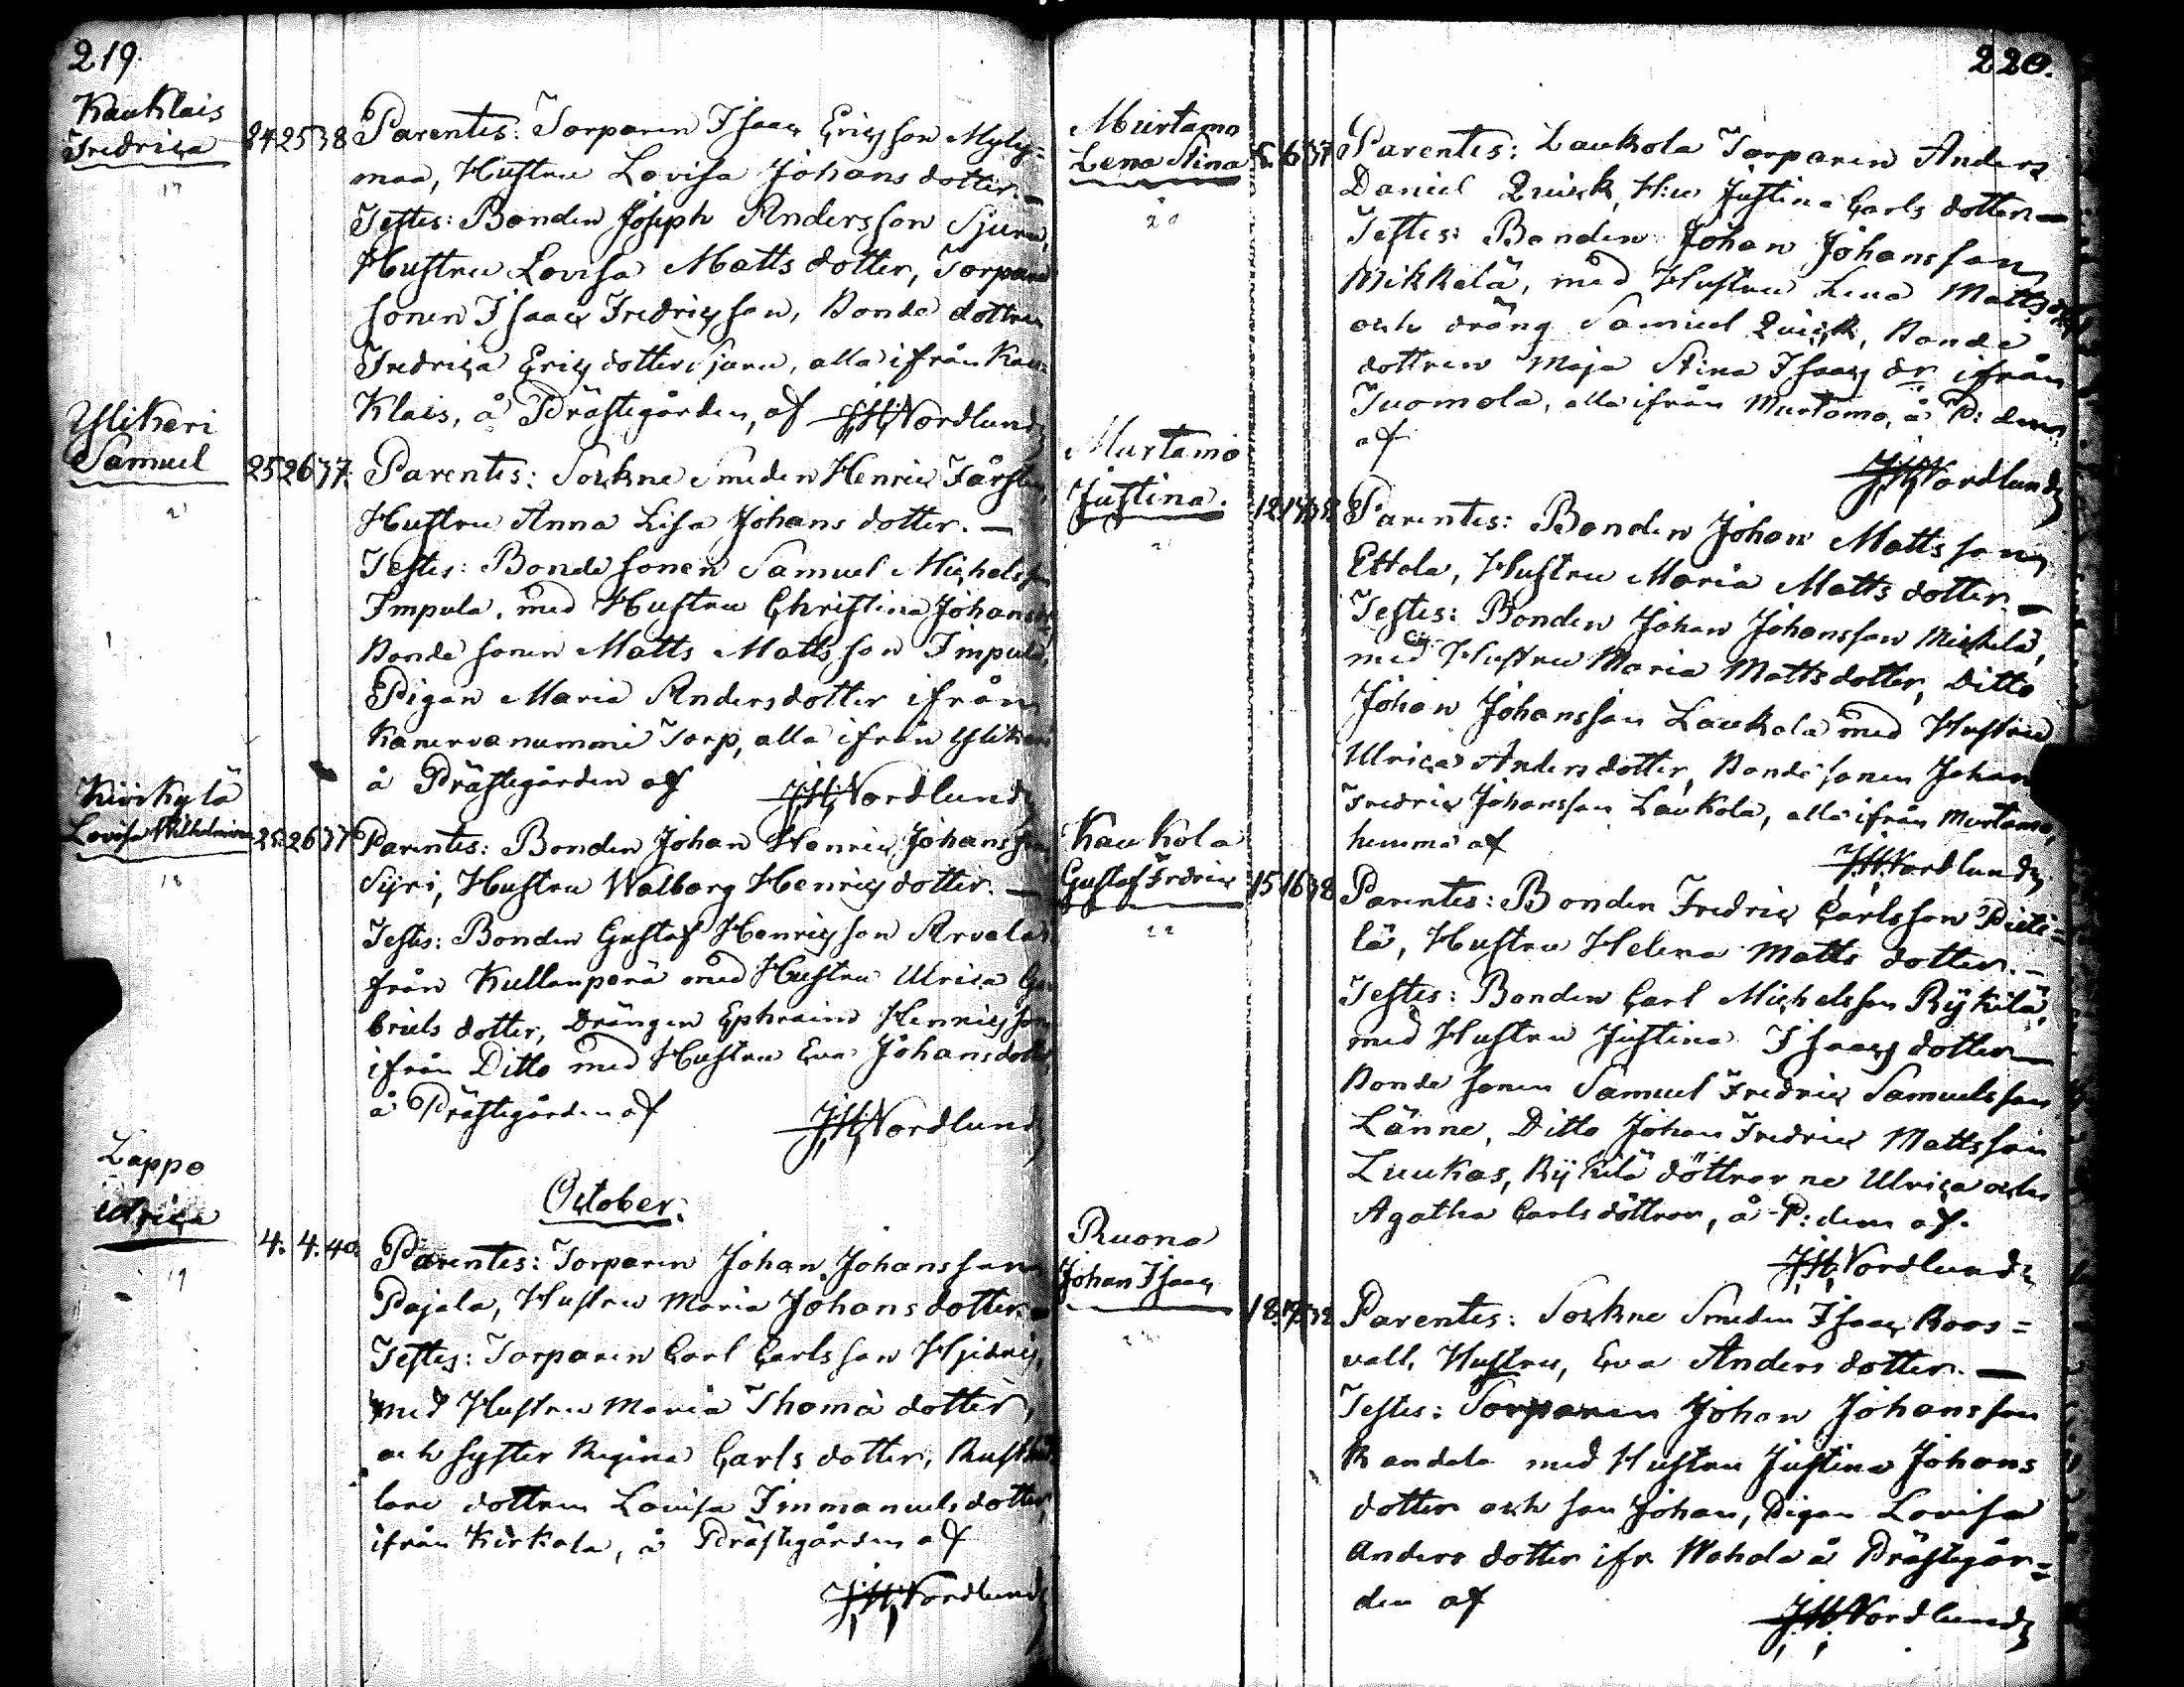 219.
Kauklais
Fredrica 24 25 38 Parentes: Torparen Isaac Ericsson Myly=
maa, Hustru Lovisa Johans dotter. —
Testes: Bonden Joseph Andersson Sjura,
Hustru Lovisa Matts dotter, Torpare
sonen Isaac Fredricsson, Bonde dottren
Fredrica Erics dotter Sjura, alla ifrån Kau=
Klais, å Prästegården, af JHNordlund
17
Ylikeri
Samuel 25 26 37. Parentes: Sockne Smeden Henric
Hustru Anna Lisa Johans dotter. —
Testes: Bonde sonen Samuel Michelsson
Impula, med Hustru Christina Johans
Bonde sonen Matts Mattsson Impula,
Pigan Maria Andersdotter ifrån
Kanervanummi Torp, alla ifrån Ylikeri
å Prästegården af JHNordlund
Kirkylä
Lovisa Wilhelmina 25 26 37 Parentes: Bonden Johan Henric Johansson
Syri, Hustru Walborg Henrics dotter. —
Testes: Bonden Gustaf Henricsson Arvela
från Kullanperä med Hustru Ulrica Ga
briels dotter, Drängen Ephraim Henricsson
ifrån Ditto med Hustru Eva Johansdotter,
å Prästegården af JHNordlund
18
October.
Lappo
Ulrica 4. 4. 40. Parentes: Torparen Johan Johansson
Pajala, Hustru Maria Johans dotter. —
Testes: Torparen Carl Carlsson
med Hustru Maria Thomä dotter,
och syster Regina Carls dotter, Rusthål
lare dottren Lovisa Immanuels dotter
ifrån Kirkola, å Prästegården af
JHNordlund
19
220.
Murtamo
Lena Stina 6 37 Parentes: Laukola Torparen Anders
Daniel Quick, H:u Justina Carls dotter —
Testes: Bonden Johan Johansson
Mikkelä, med Hustru Lena Matts dotter
och dräng Samuel Quick, Bonde
dottren Maja Stina Isaacs dr ifrån
Tuomola, alla ifrån Murtamo, å P: den
af
JHNordlund
20
Murtamo
Justina. 12 Parentes: Bonden Johan Mattsson
Ettola, Hustru Maria Matts dotter —
Testes: Bonden Johan Johansson Mickelä,
med Hustru Maria Mattsdotter, Ditto
Johan Johansson Laukola med Hustru
Ulrica Anders dotter, Bonde sonen Johan
Fredric Johansson Laukola, alla ifrån Murtamo,
hemma af
JHNordlund
Kaukola
Gustaf Fredric 15 16 38 Parentes: Bonden Fredric Carlsson Pieti=
lä, Hustru Helena Matts dotter. —
Testes: Bonden Carl Michelsson Rykilä,
med Hustru Justina Isaacs dotter —
Bonde sonen Samuel Fredric Samuelsson
Länne, Ditto Johan Fredric Mattsson
Luukas, Rykilä döttrarne Ulrica och
Agatha Carls döttrar, å P: den af.
JHNordlund
22
Ruona
Johan Isaac 18 Parentes: Sockne Smeden Isaac Roos=
vall, Hustru, Eva Anders dotter. —
Testes: Torparen Johan Johansson
Randala med Hustru Justina Johans
dotter och son Johan, Pigan Lovisa
Anders dotter ifr. Wahola å Prästegår=
den af JHNordlund